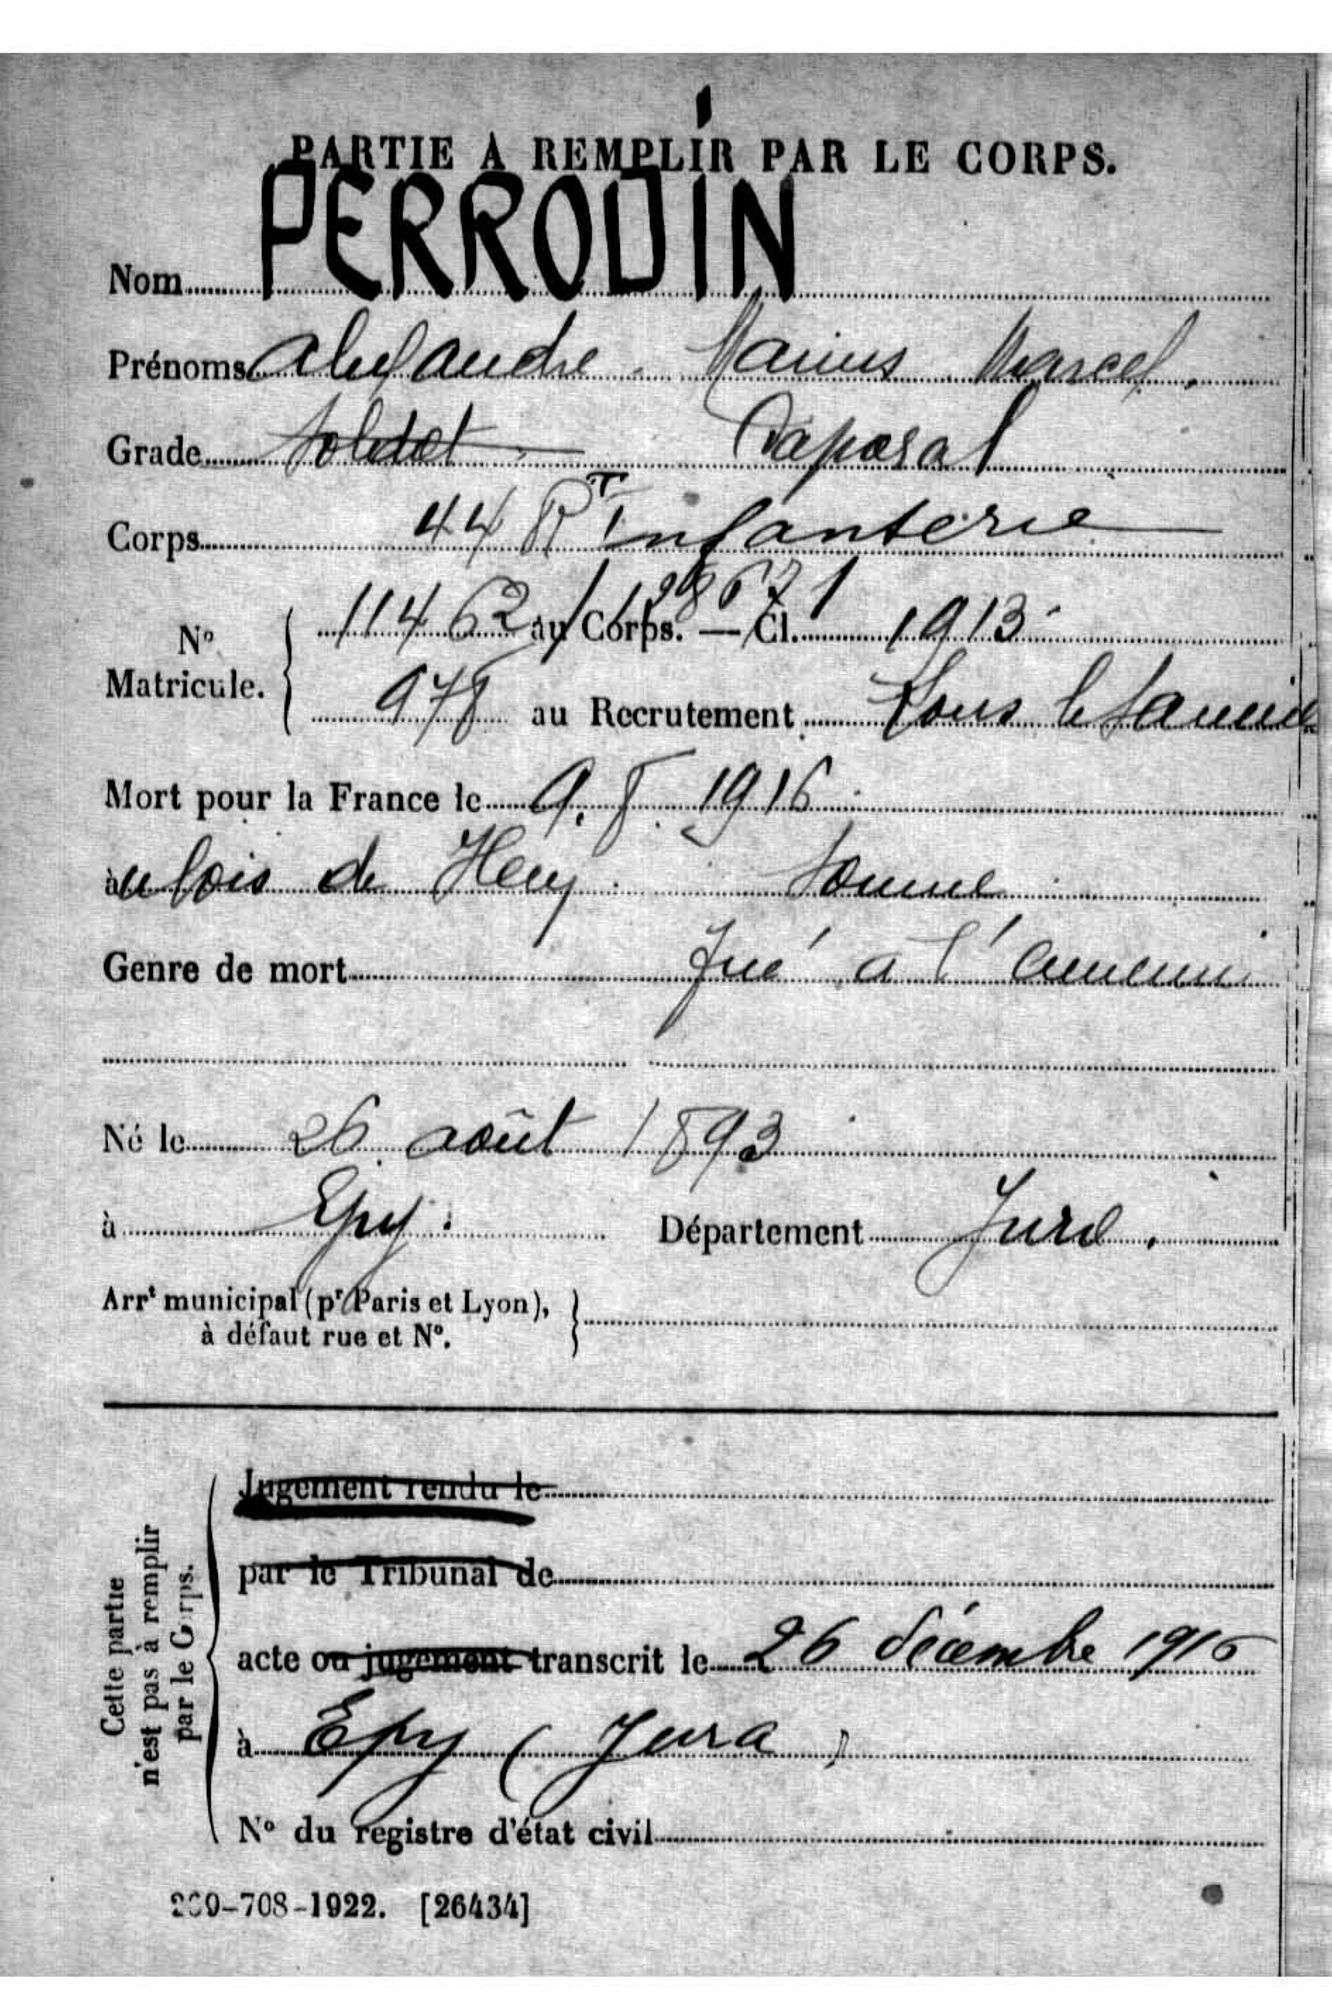 PARTIE A REMPLIR PAR LE CORPS.
Nom PERRODIN
Prénoms Alexandre Marius Marcel.
Grade Soldat Caporal
Corps 44 RT Infanterie
N° Matricule. { 11462 / 12867 / au Corps. — Cl. 1913
978 au Recrutement Lons le Saunier
Mort pour la France le 9. 8. 1916
au bois de Hem Somme
Genre de mort Tué à l'ennemi
Né le 26 août 1893
à Epy. Département Jura.
Arrt municipal (pr Paris et Lyon),
à défaut rue et N°.
Cette partie n'est pas à remplir par le Corps.
Jugement rendu le
par le Tribunal de
acte ou jugement transcrit le 26 décembre 1916
à Epy (Jura)
N° du registre d'état civil
269-708-1922. [26434]